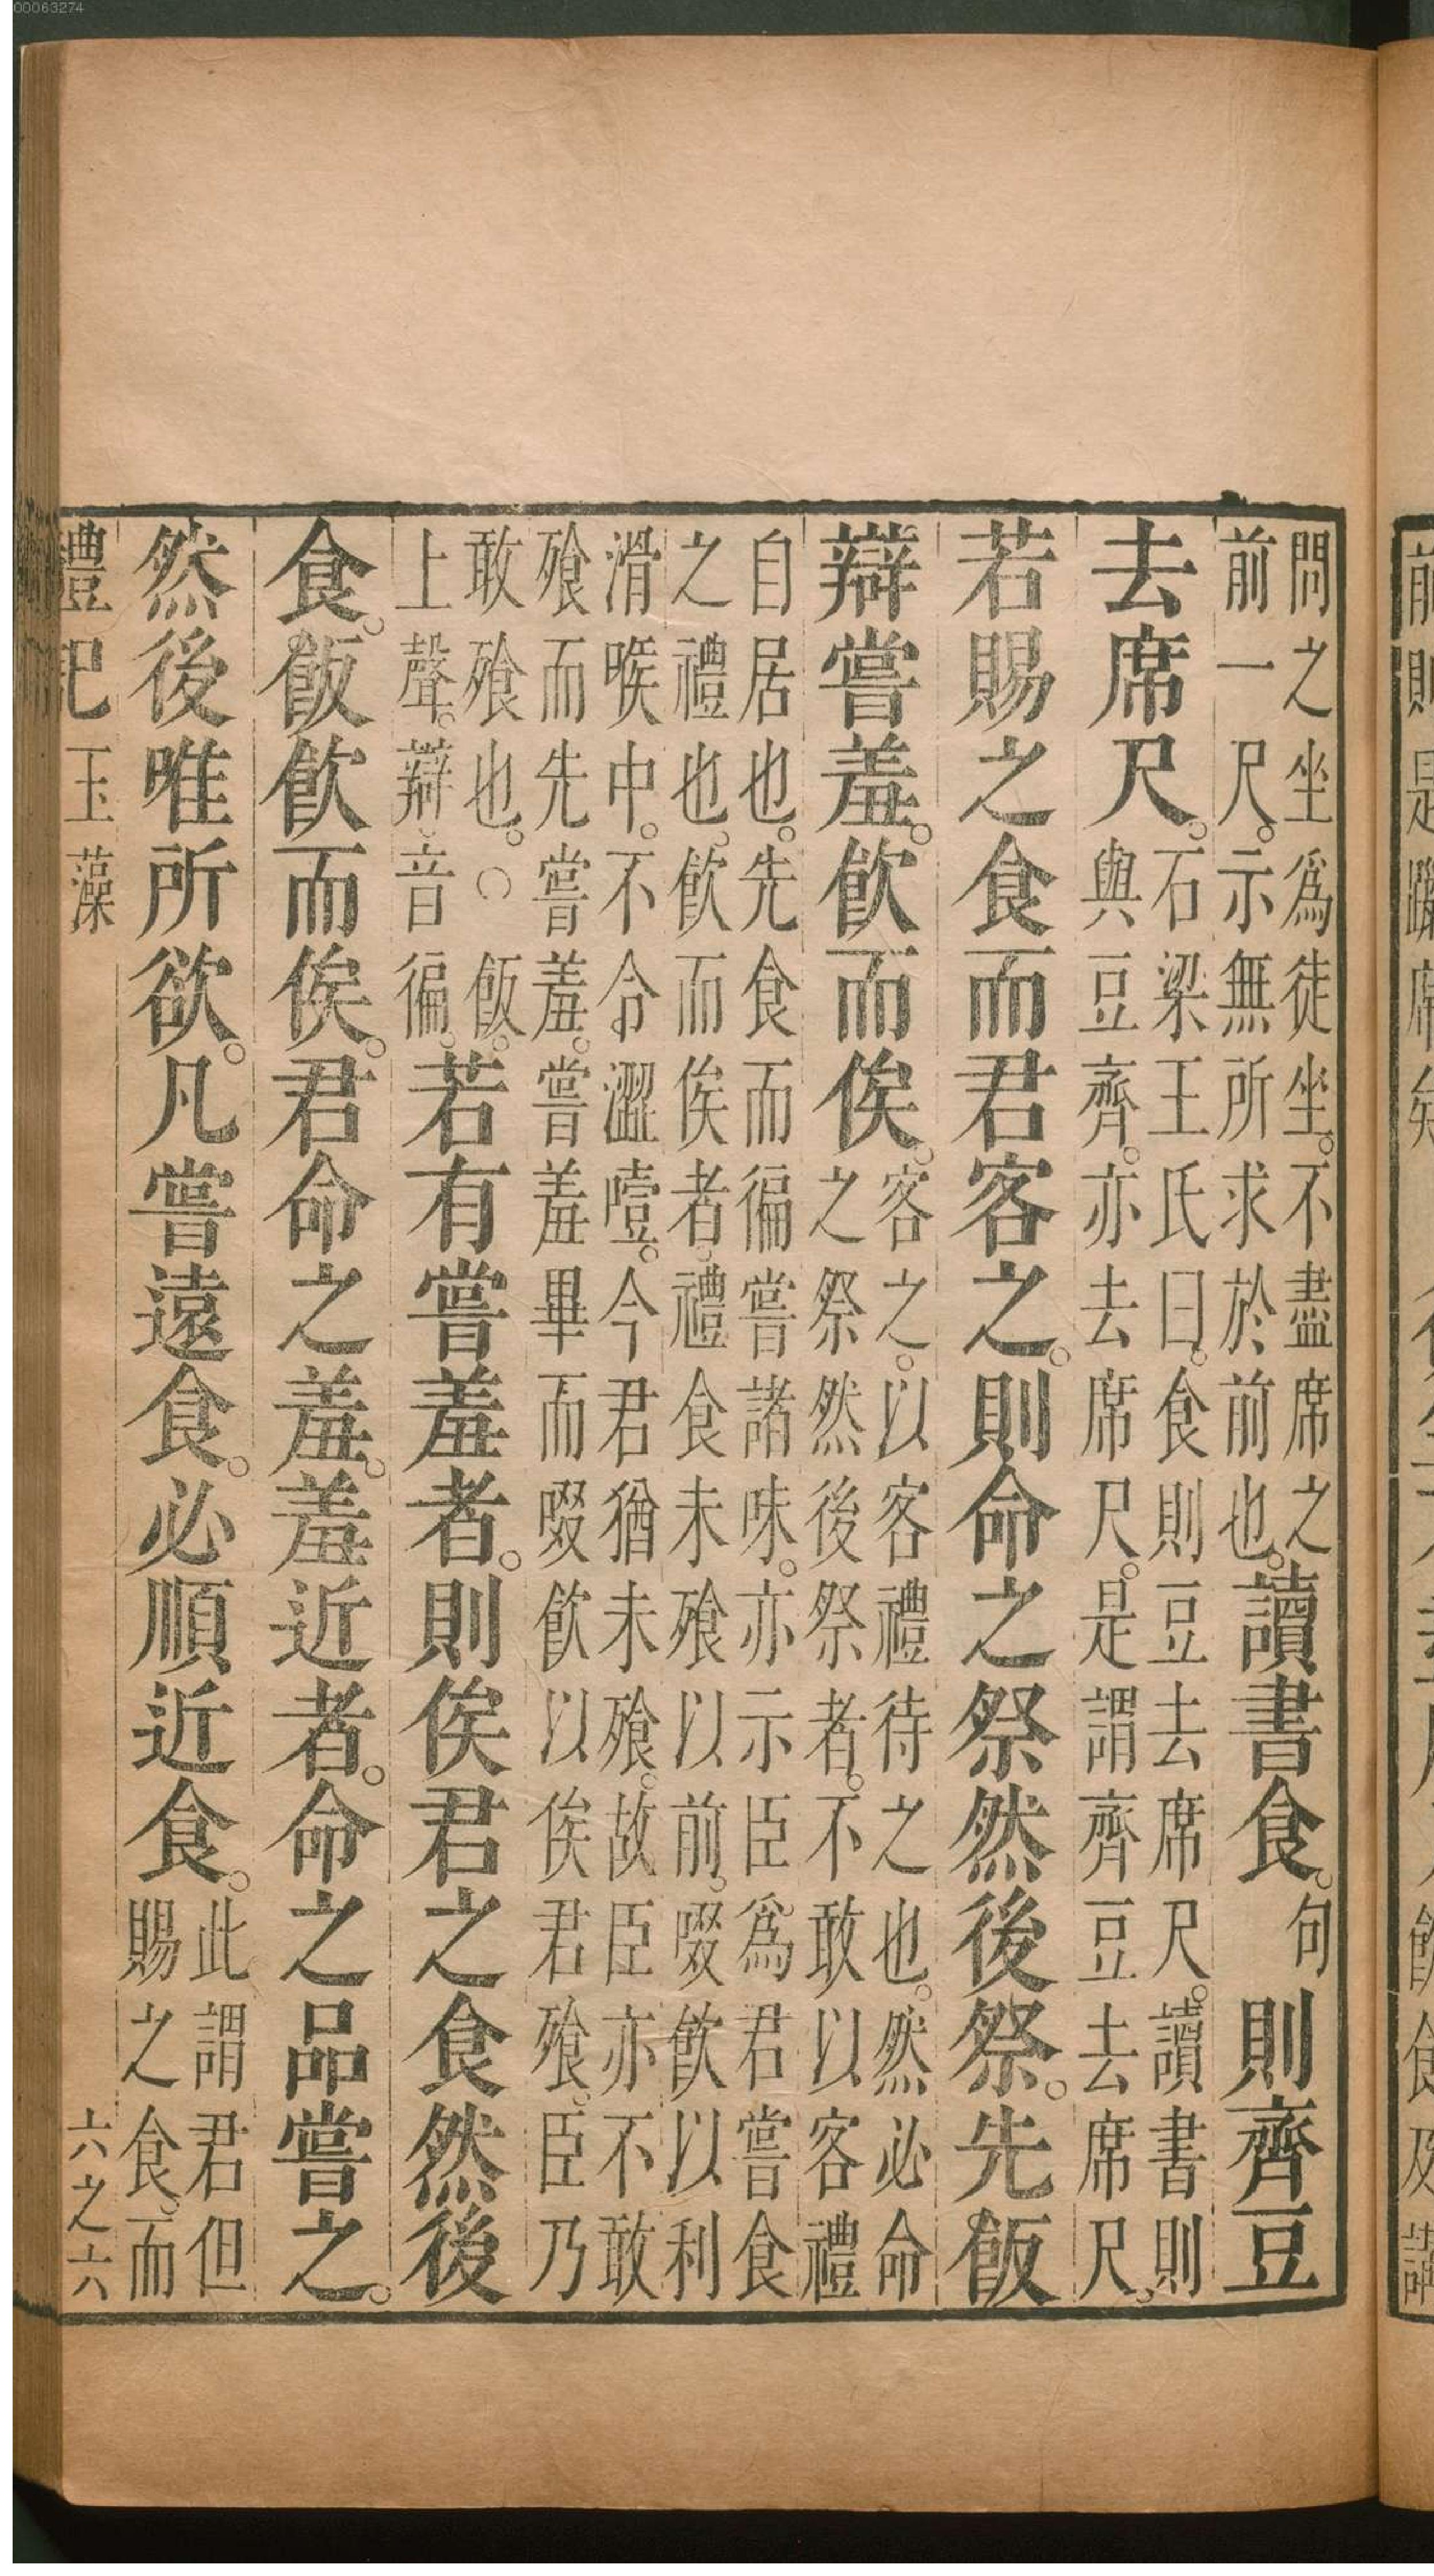 問之坐爲徒坐。不盡席之
前一尺。示無所求於前也。
讀書食。句則齊豆
去席尺。
石梁王氏曰。食則豆去席尺。讀書則
與豆齊。亦去席尺。是謂齊豆去席尺。
若賜之食而君客之。則命之祭然後祭。先飯
辯嘗羞。飲而俟。
客之。以客禮待之也。然必命
之祭然後祭者。不敢以客禮
自居也。先食而徧嘗諸味。亦示臣爲君嘗食
之禮也。飲而俟者。禮食未飱以前。啜飲以利
滑喉中。不令澀噎。今君猶未飱。故臣亦不敢
飱而先嘗羞。嘗羞畢而啜飲以俟君飱。臣乃
敢飱也。○飯。
上聲。辯音徧。
若有嘗羞者。則俟君之食然後
食。飯飲而俟。君命之羞。羞近者。命之品嘗之。
然後唯所欲。凡嘗遠食。必順近食。
此謂君但
賜之食。而
禮記 玉藻 六之六
00063274